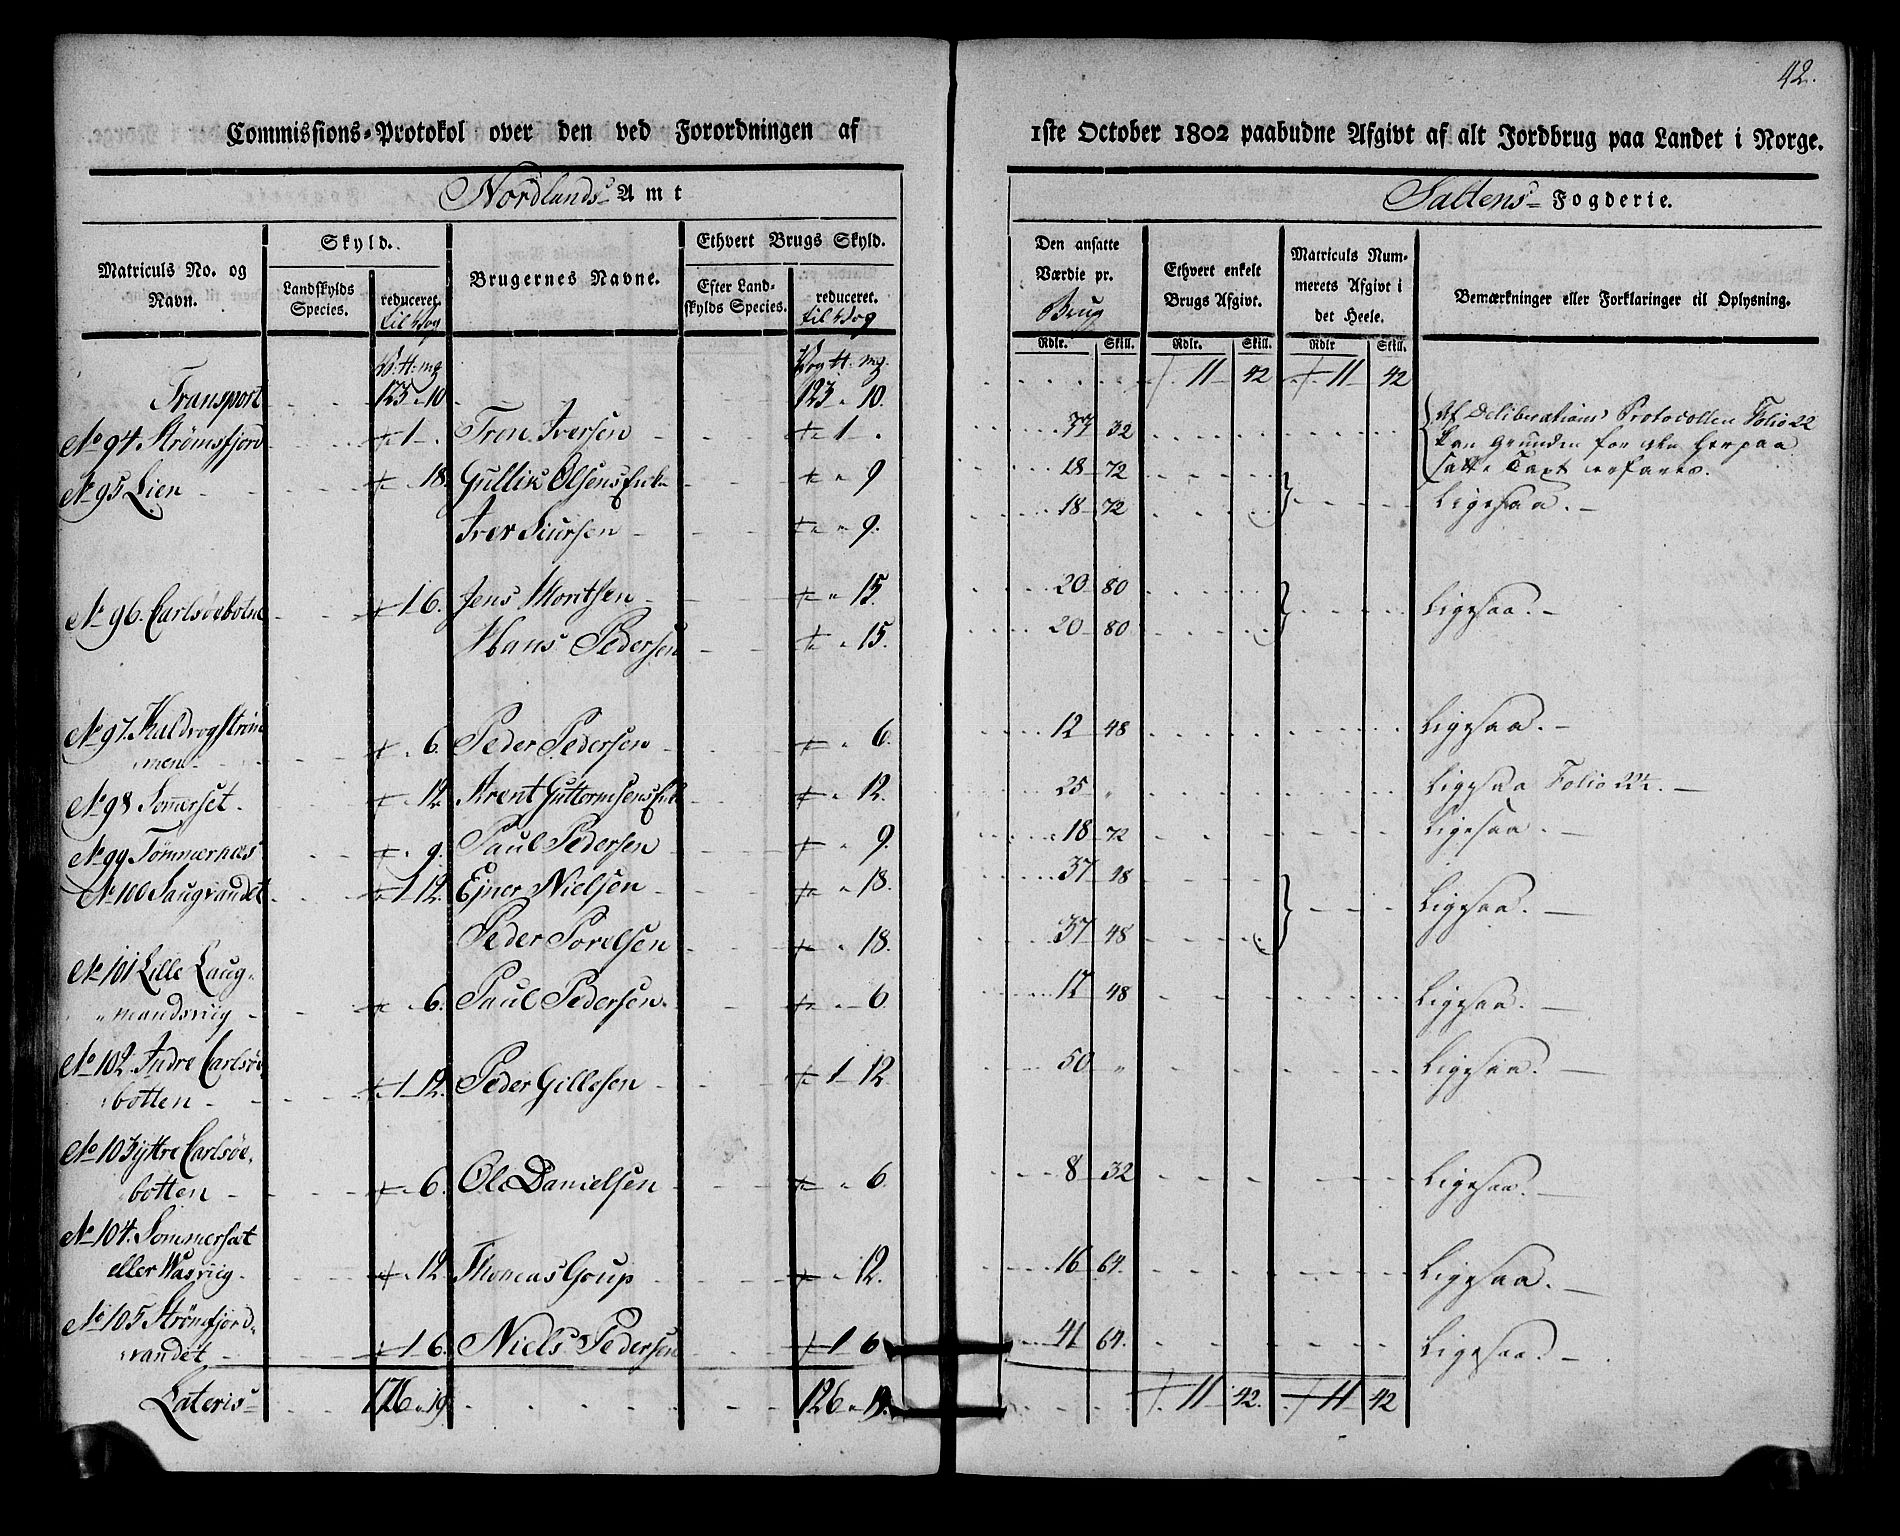 42.
Commissions-Protokol over den ved Forordningen af 1ste October 1802 paabudne Afgivt af alt Jordbrug paa Landet i Norge.
Nordlands Amt
Saltens Fogderie.
Matriculs No. og Navn.
Skyld.
Landskylds Species.
reduceret. til Wog
Brugernes Navne.
Ethvert Brugs Skyld.
Efter Landskylds Species.
reduceret. til Wog
Den ansatte Værdie pr. Brug
Ethvert enkelt Brugs Afgivt.
Matriculs Nummerets Afgivt i det Heele.
Bemærkninger eller Forklaringer til Oplysning.
Rdlr. Skill. Rdlr. Skill. Rdlr Skill.
Transport 123 " 10 123 " 10. 11 42 11 42
No 94. Strømsfjord 1 Tron Iversen 1 37 32 Af Deliberations Protocollen Folio 22
kan Grunden for den herpaa
satte Taxt erfares.
No 95 Lien 18. Gullik Olsens Enke 9 18 72 Ligesaa.
Iver Siursen 9. 18 72
No 96. Carlsöebotne 1 6. Jens Moritsen 15. 20 80 Ligesaa.
Hans Pedersen 15. 20 80
No 97. Kaldvogstrømmen 6. Peder Pedersen 6. 12 48 Ligesaa.
No 98 Somerset. 12 Arent Guttormsens Enke 12. 25 " Ligesaa Folio 22½.
No 99 Tömmernæs 9. Paul Pedersen 9. 18 72 Ligesaa.
No 100 Saugvandet 1 12. Ejner Nielsen 18. 37 48 Ligesaa.
Peder Porelsen 18. 37 48
No 101 Lille Laug-
mandsviig 6. Paul Pedersen 6 12 48 Ligesaa.
No 102. Indre Carlsöe
botten 1 12. Peder Gillesen 1 12 50 " Ligesaa.
No 103 yttre Carlsöe
botten 6. Ole Danielsen 6. 8 32 Ligesaa.
No 104. Sommersæt
eller Wasviig 12 Thomas Goup 12. 16 64. Ligesaa.
No 105 Strömsfjord
vandet 1 6. Niels Pedersen 1 6 41 64. Ligesaa.
Lateris 126 " 19. 126 " 19. 11 42. 11 42